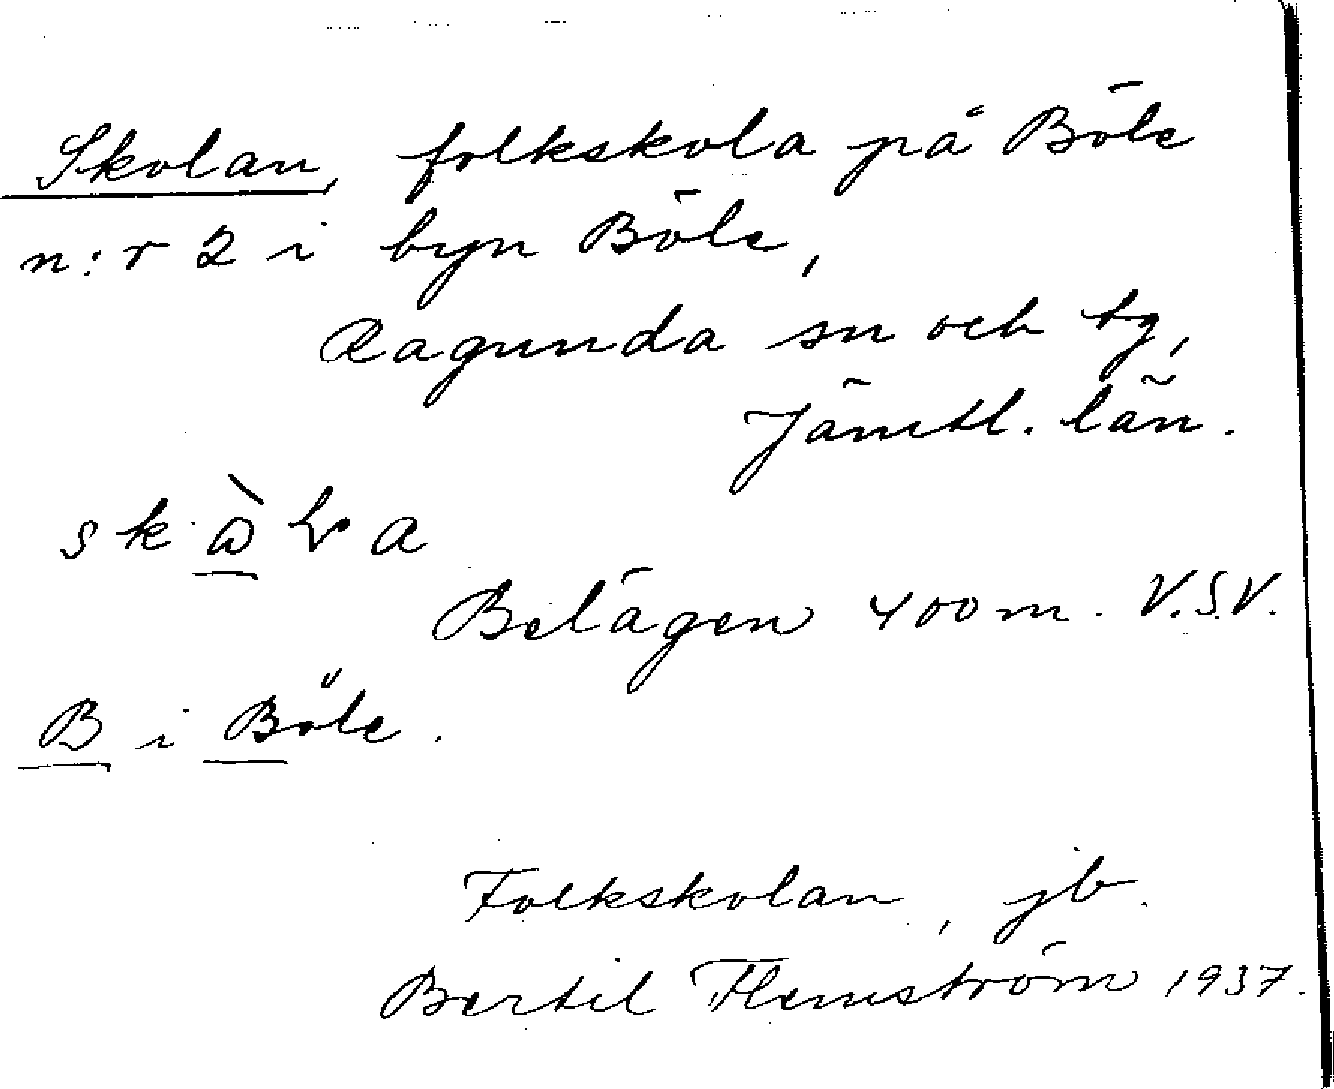 Skolan, folkskola på Böle
n:r 2 i byn Böle,
Ragunda sn och tg,
Jämtl. län.
Belägen 400 m. V.S.V.
B i Böle.
Folkskolan, jb.
Bertil Flemström 1937.